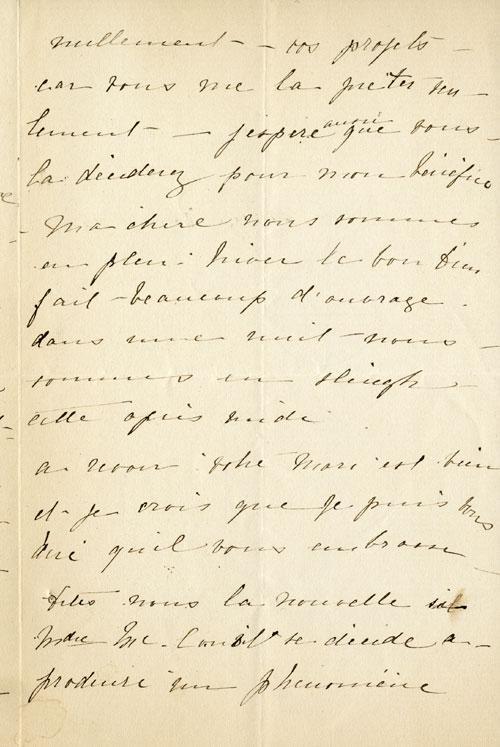 nullement – vos projets –
car vous me la prêter seu-
lement – j'espère aussi que vous
la déciderez pour mon bénéfice
– Ma chère nous sommes
en plein hiver le bon Dieu
fait beaucoup d'ouvrage
dans une nuit – nous –
sommes en sleigh
cette après midi
a revoir votre Mari est bien
et je crois que je puis vous
dire qu'il vous embrasse
Dites nous la nouvelle si
Mde Mc. se décide a –
produire un phenomène